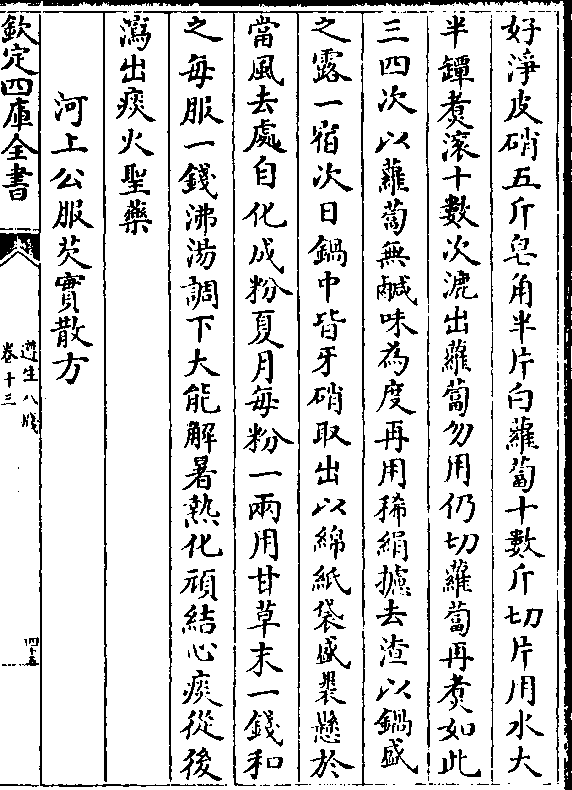 好淨皮硝五斤皂角半片白蘿蔔十數斤切片用水大
半鐔煮滚十數次漉出蘿蔔勿用仍切蘿蔔再煮如此
三四次以蘿蔔無鹹味為度再用稀絹攄去渣以鍋盛
之露一宿次日鍋中皆牙硝取出以綿紙袋盛褁懸於
當風去處自化成粉夏月每粉一兩用甘草末一錢和
之每服一錢沸湯調下大能解暑熱化頑結心痰從後
瀉出痰火聖藥
河上公服芡實散方
欽定四庫全書
遵生八牋
卷十三
四十五